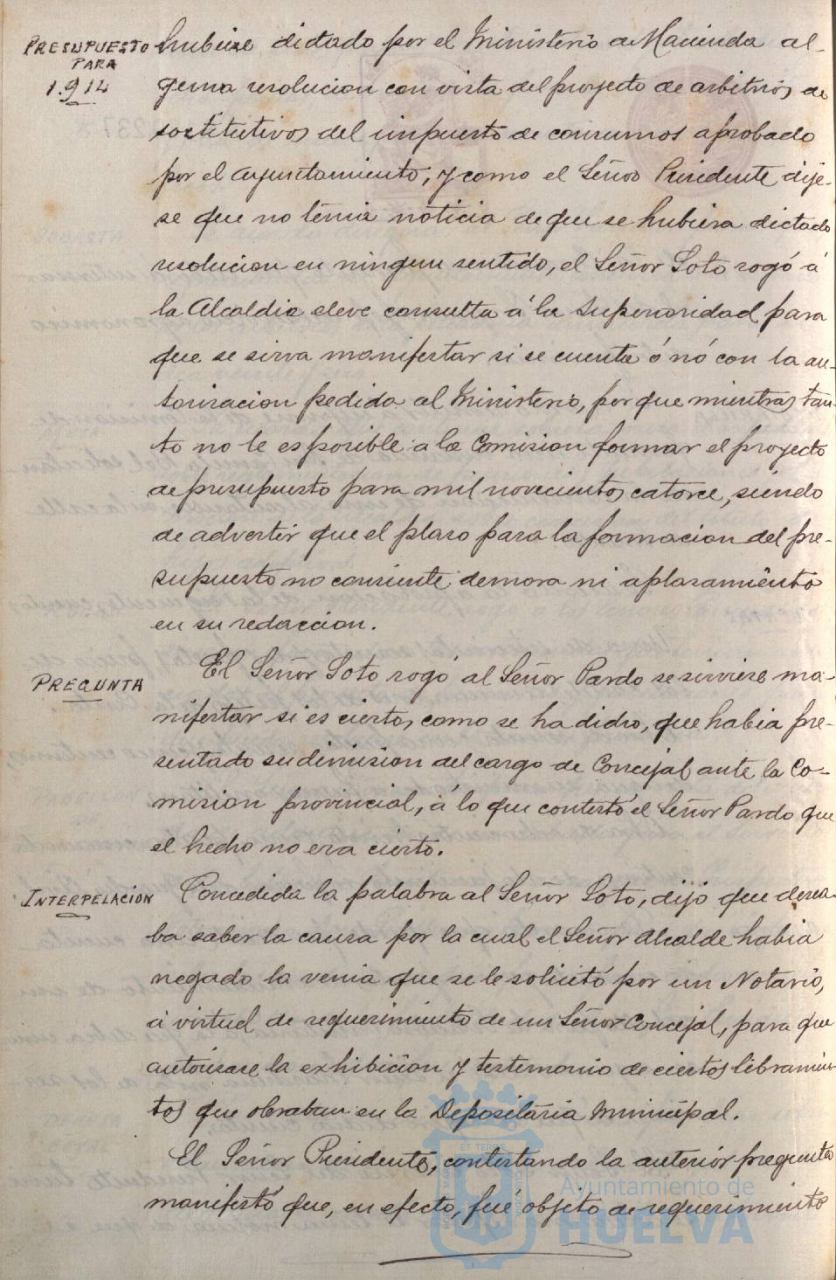 PRESUPUESTO
PARA
1.914
hubiese dictado por el Ministerio de Hacienda al-
guna resolucion con vista del proyecto de arbitrios
sostitutivos del impuesto de consumos aprobado
por el Ayuntamiento; y como el Señor Presidente dije-
se que no tenia noticia de que se hubiera dictado
resolucion en ningun sentido, el Señor Soto rogó á
la Alcaldia eleve consulta á la Superioridad para
que se sirva manifestar si se cuenta ó nó con la au-
torizacion pedida al Ministerio, por que mientras tan-
to no le es posible a la Comision formar el proyecto
de presupuesto para mil novecientos catorce, siendo
de advertir que el plazo para la formacion del pre-
supuesto no consiente demora ni aplazamiento
en su redaccion.
PREGUNTA
El Señor Soto rogó al Señor Pardo se sirviese ma-
nifestar si es cierto, como se ha dicho, que habia pre-
sentado su dimision del cargo de Concejal ante la Co-
mision provincial, á lo que contestó el Señor Pardo que
el hecho no era cierto.
INTERPELACION
Concedida la palabra al Señor Soto, dijo que desea-
ba saber la causa por la cual el Señor Alcalde habia
negado la venia que se le solicitó por un Notario,
á virtud de requerimiento de un Señor Concejal, para que
autorizase la exhibicion y testimonio de ciertos libramien-
tos que obraban en la Depositaria Municipal.
El Señor Presidente, contestando la anterior pregunta
manifestó que, en efecto, fué objeto de requerimiento
Ayuntamiento de
HUELVA